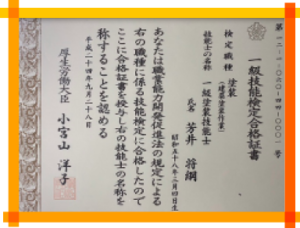 第一二-一-〇六〇-〇四-〇〇〇一号
一級技能検定合格証書
検定職種 塗装
(建築塗装作業)
技能士の名称 一級塗装技能士
氏名 芳井 将綱
昭和五十八年三月四日生
あなたは職業能力開発促進法の規定による
右の職種に係る技能検定に合格したので
ここに合格証書を授与し右の技能士の名称を
称することを認める
平成二十四年九月二十八日
厚生労働大臣 小宮山 洋子